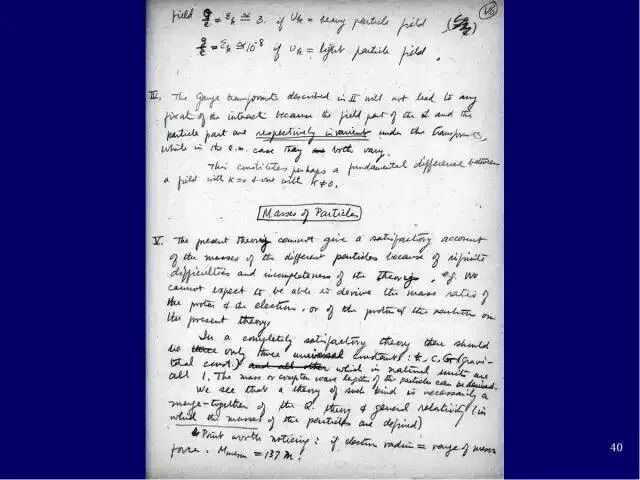 field g/e = εₖ ≅ 3. if Uₖ = heavy particle field
g/e = εₖ ≅ 10⁻⁸ if Uₖ = light particle field.
III. The Gauge transformats described in II will not lead to any
of the interact because the field part of the L and the
particle part are respectively invarient under the transformats,
while in the e.m. case they are both vary.
This constitutes perhaps a fundamental difference between
a field with K=0 & one with K≠0.
Masses of Particles
V. The present theory cannot give a satisfactory account
of the masses of the different particles because of infinite
difficulties and incompleteness of the theory, e.g. We
cannot expect to be able to derive the mass ratio of
the proton & the electron, or of the proton & the neutron on
the present theory.
In a completely satisfactory theory there should
be three only three universal constants: ħ, c, G (gravi-
tational const.) and all other which in natural units are
all 1. The mass or compton wave lengths of the particles can be derived.
We see that a theory of such kind is necessarily a
merge-together of the Q. theory & general relativity (in
which the masses of the particles are defined)
Point worth noticing: if electron radius = range of meson
force. M meson = 137 m.
40